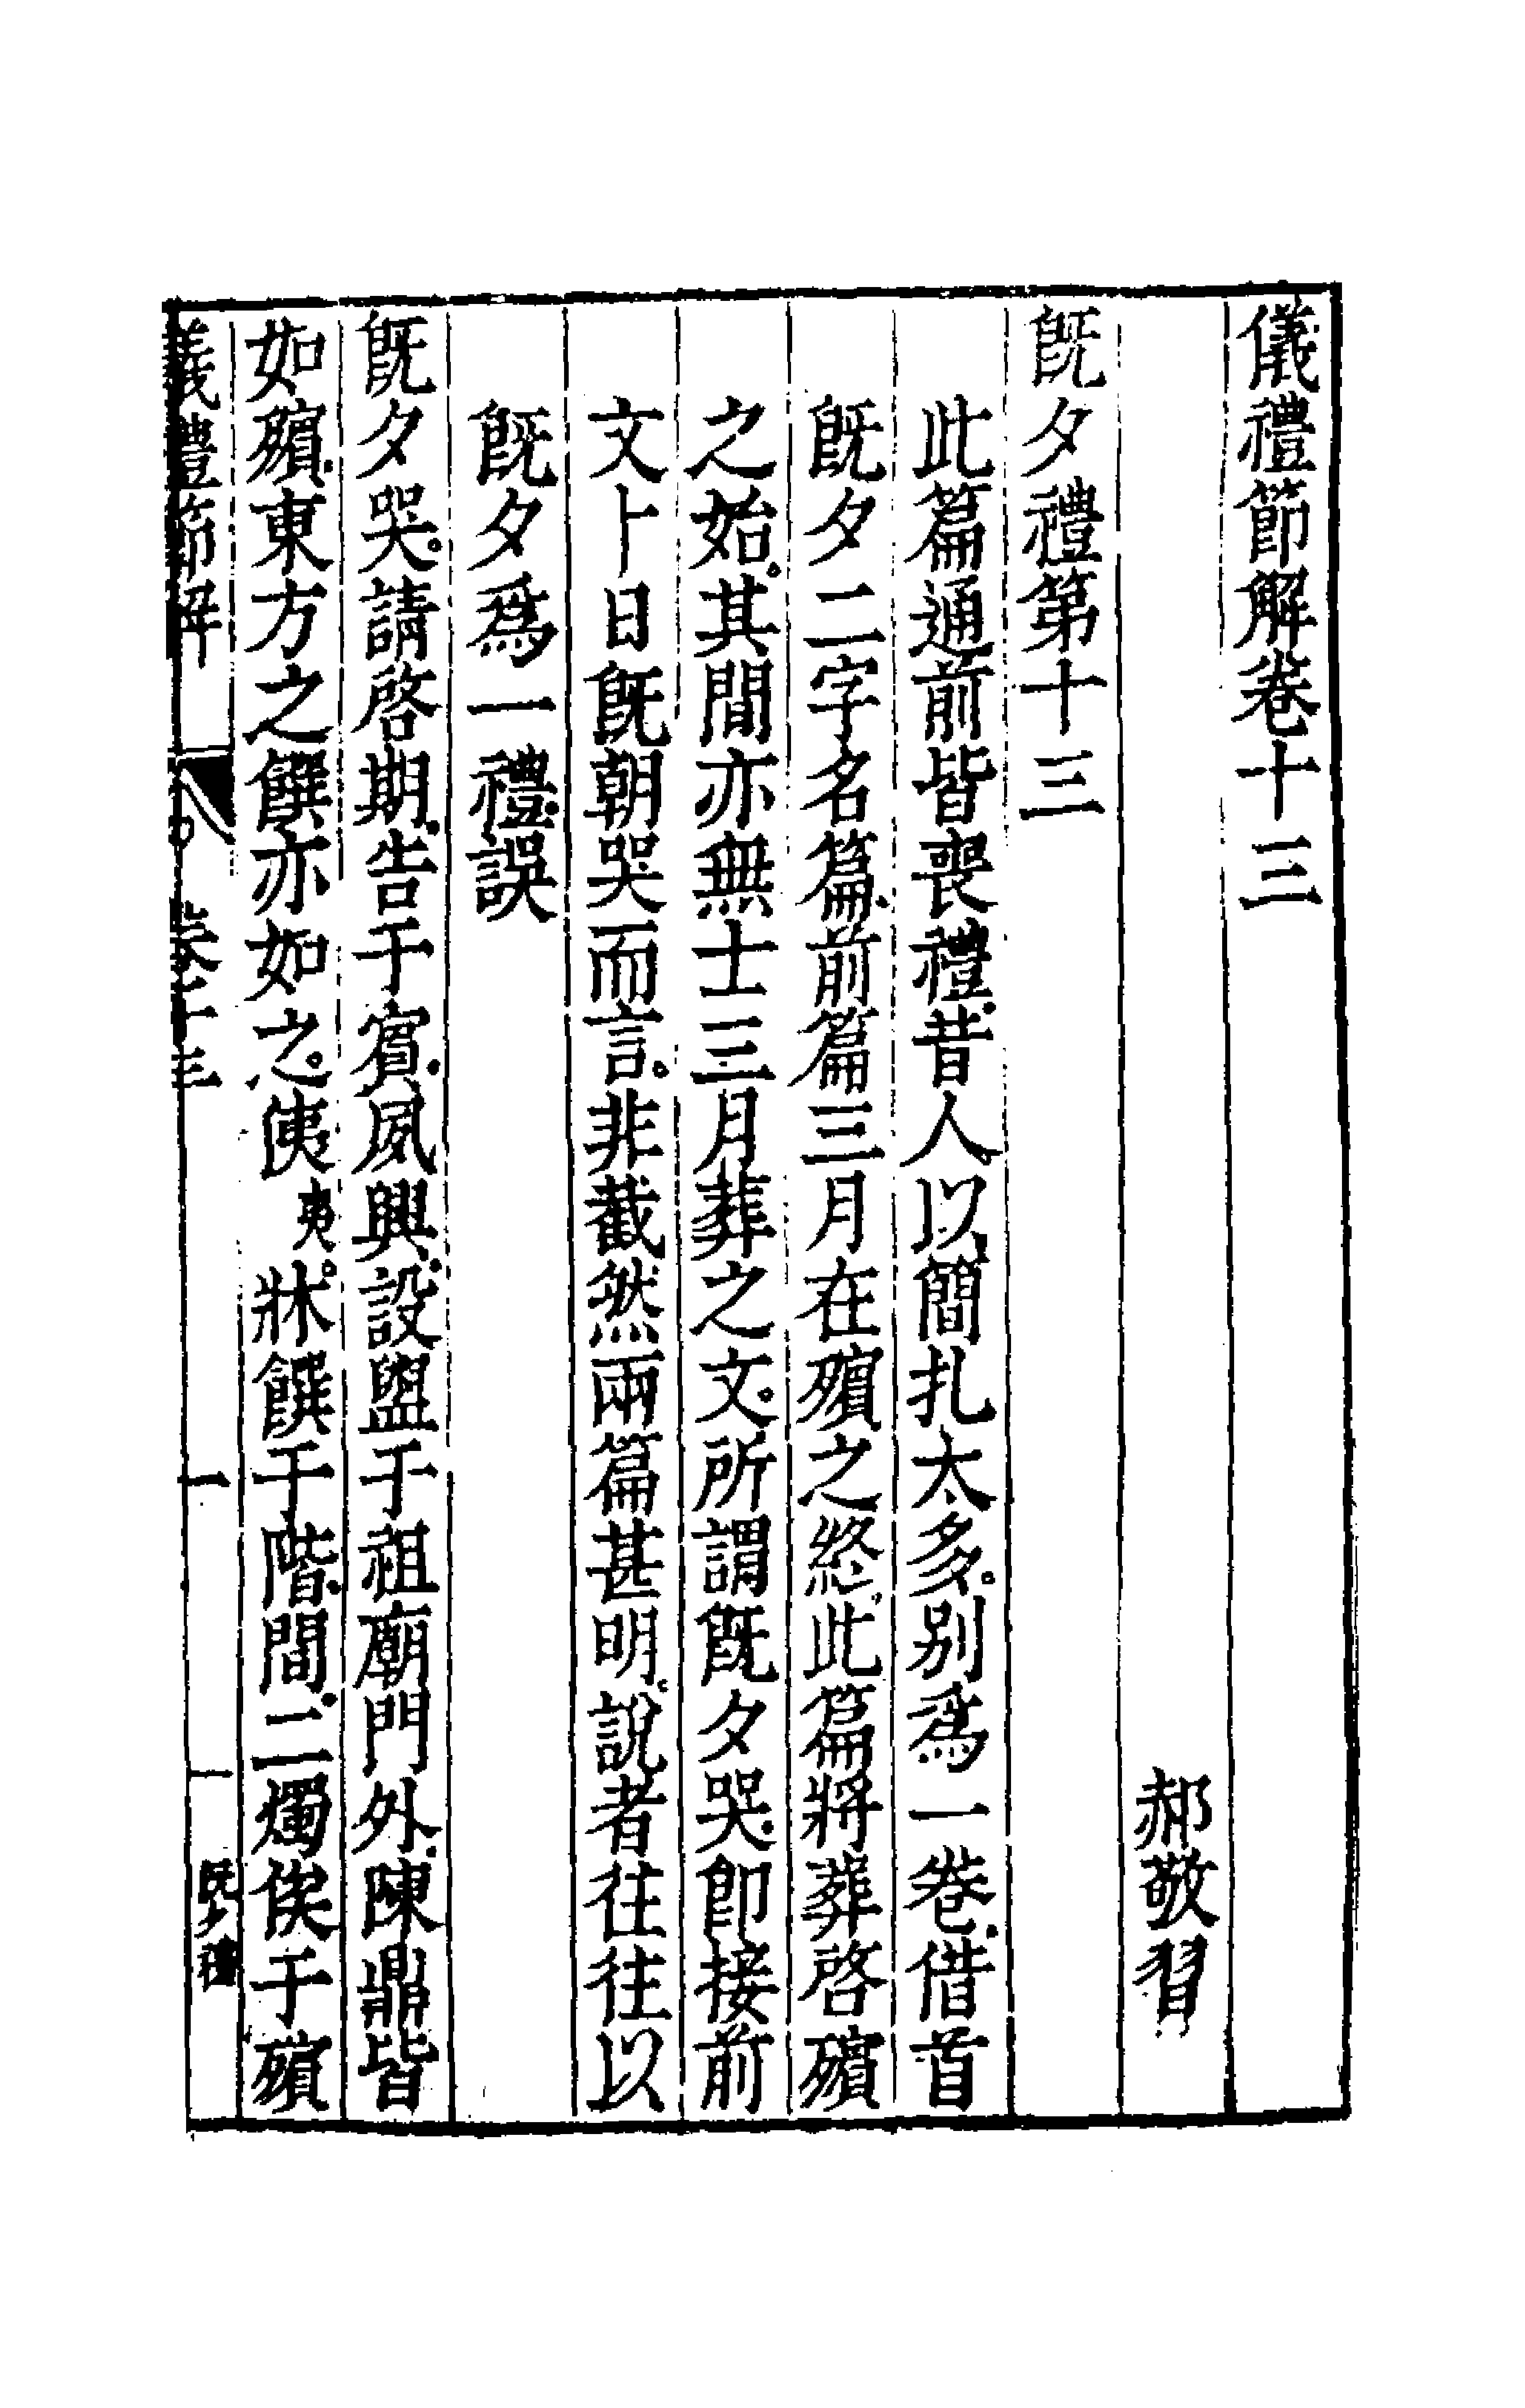 儀禮節解卷十三
郝敬習
旣夕禮第十三
此篇通前皆喪禮昔人以簡札太多別爲一卷借首
旣夕二字名篇前篇三月在殯之終此篇將葬啓殯
之始其間亦無士三月葬之文所謂旣夕哭卽接前
文卜日旣朝哭而言非截然兩篇甚明說者往往以
旣夕爲一禮誤
旣夕哭請啓期告于賓夙興設盥于祖廟門外陳鼎皆
如殯東方之饌亦如之侇夷牀饌于階間二燭俟于殯
儀禮節解 卷十三 一